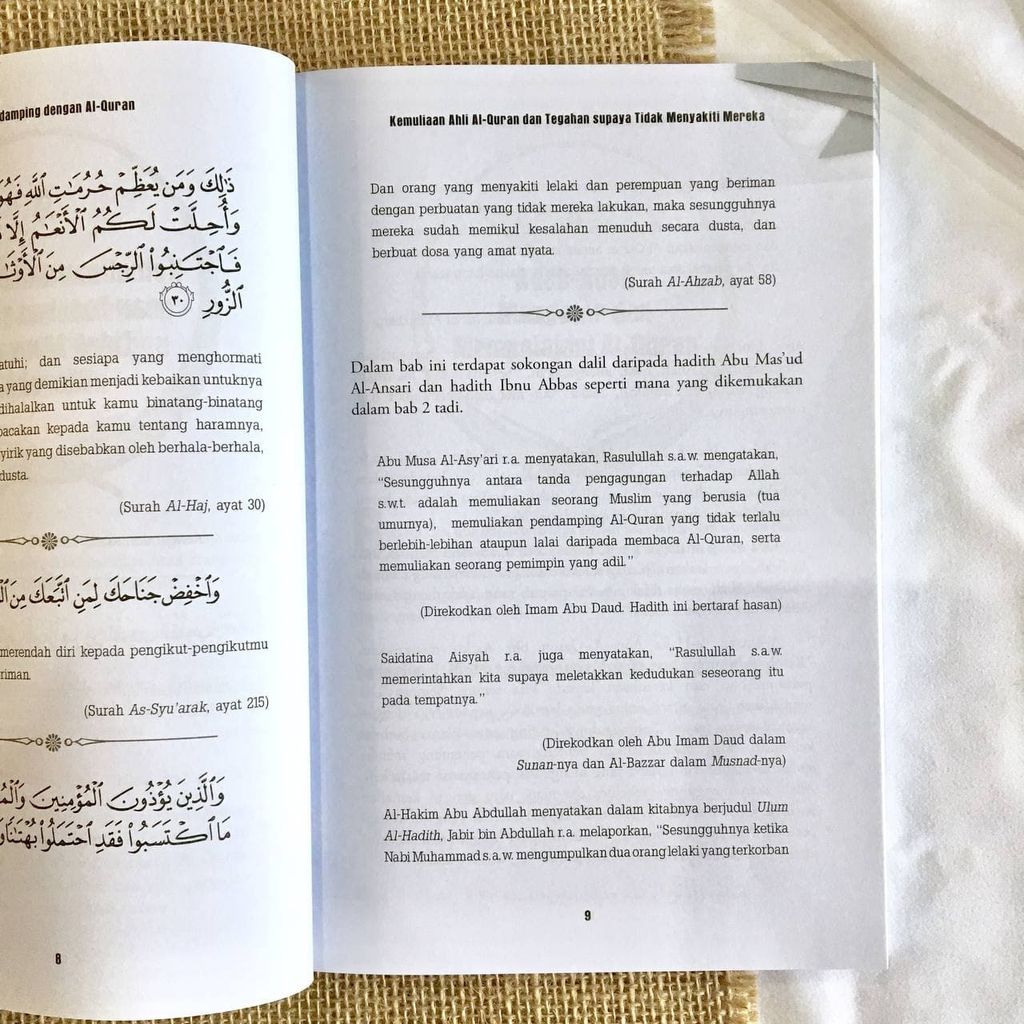 damping dengan Al-Quran
ذَٰلِكَ وَمَن يُعَظِّمْ حُرُمَٰتِ ٱللَّهِ فَهُوَ
وَأُحِلَّتْ لَكُمُ ٱلْأَنْعَٰمُ إِلَّا
فَٱجْتَنِبُوا۟ ٱلرِّجْسَ مِنَ ٱلْأَوْثَٰ
ٱلزُّورِ ٣٠
atuhi; dan sesiapa yang menghormati
a yang demikian menjadi kebaikan untuknya
dihalalkan untuk kamu binatang-binatang
bacakan kepada kamu tentang haramnya,
yirik yang disebabkan oleh berhala-berhala,
dusta.
(Surah Al-Haj, ayat 30)
وَٱخْفِضْ جَنَاحَكَ لِمَنِ ٱتَّبَعَكَ مِنَ
merendah diri kepada pengikut-pengikutmu
riman.
(Surah As-Syu'arak, ayat 215)
وَٱلَّذِينَ يُؤْذُونَ ٱلْمُؤْمِنِينَ
مَا ٱكْتَسَبُوا۟ فَقَدِ ٱحْتَمَلُوا۟ بُهْتَٰنًا
8
Kemuliaan Ahli Al-Quran dan Tegahan supaya Tidak Menyakiti Mereka
Dan orang yang menyakiti lelaki dan perempuan yang beriman
dengan perbuatan yang tidak mereka lakukan, maka sesungguhnya
mereka sudah memikul kesalahan menuduh secara dusta, dan
berbuat dosa yang amat nyata.
(Surah Al-Ahzab, ayat 58)
Dalam bab ini terdapat sokongan dalil daripada hadith Abu Mas'ud
Al-Ansari dan hadith Ibnu Abbas seperti mana yang dikemukakan
dalam bab 2 tadi.
Abu Musa Al-Asy'ari r.a. menyatakan, Rasulullah s.a.w. mengatakan,
“Sesungguhnya antara tanda pengagungan terhadap Allah
s.w.t. adalah memuliakan seorang Muslim yang berusia (tua
umurnya), memuliakan pendamping Al-Quran yang tidak terlalu
berlebih-lebihan ataupun lalai daripada membaca Al-Quran, serta
memuliakan seorang pemimpin yang adil.”
(Direkodkan oleh Imam Abu Daud. Hadith ini bertaraf hasan)
Saidatina Aisyah r.a. juga menyatakan, “Rasulullah s.a.w.
memerintahkan kita supaya meletakkan kedudukan seseorang itu
pada tempatnya.”
(Direkodkan oleh Abu Imam Daud dalam
Sunan-nya dan Al-Bazzar dalam Musnad-nya)
Al-Hakim Abu Abdullah menyatakan dalam kitabnya berjudul Ulum
Al-Hadith, Jabir bin Abdullah r.a. melaporkan, “Sesungguhnya ketika
Nabi Muhammad s.a.w. mengumpulkan dua orang lelaki yang terkorban
9